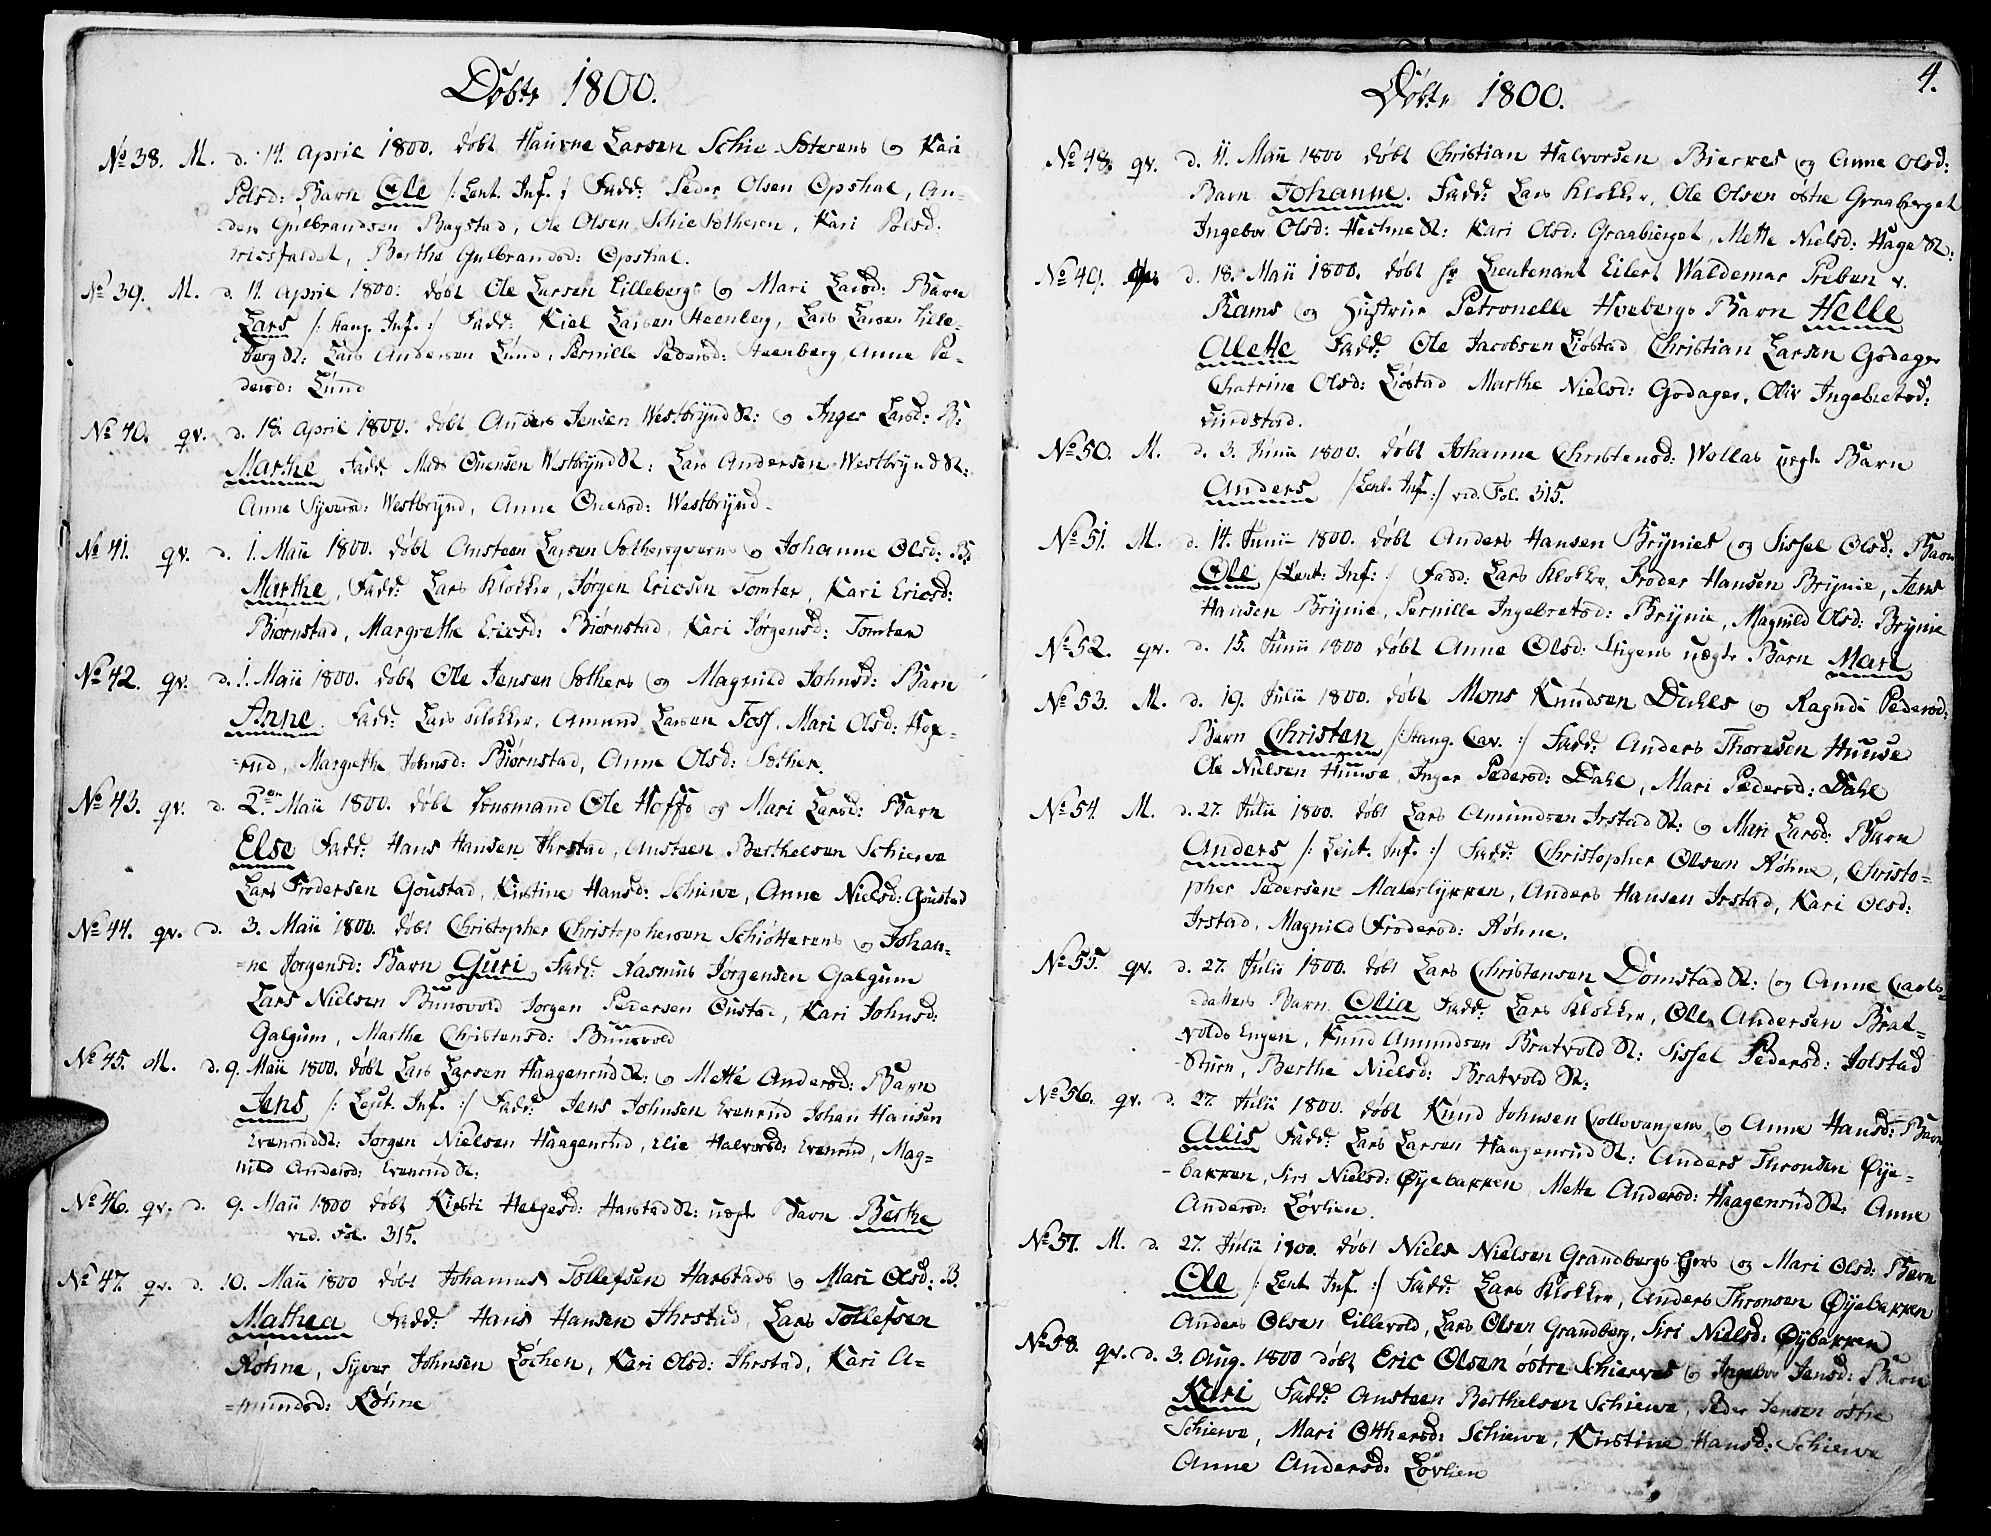 Døbte 1800.
No 38. M. d. 14. April 1800. døbt Haurne Larsen Schie Sæterens og Kari
Polsd: Barn Ole /: Lent. Inf. :/ Fadd: Peder Olsen Opshal, An-
ders Gulbrandsen Bagstad, Ole Olsen Schie Sætheren, Kari Polsd:
Berthe Gulbrandsd: Opshal.
No 39. M. d. 14. April 1800: døbt Ole Larsen Lillebergs og Mari Larsd: Barn
Lars /: Stang. Inf. :/ Fadd: Kiel Larsen Steenberg, Lars Larsen Lille-
berg St: Lars Andersen Lund, Pernille Pedersd: Steenberg Anne Pe-
dersd: Lund
No 40. qv. d. 18. April 1800. døbt Anders Jensen Westbrynd St: og Inger Larsd: B:
Marthe Fadd: Mads Evensen Westbrynd St: Lars Andersen Westbrynd St:
Anne Syversd: Westbrynd, Anne Evensd: Westbrynd.
No 41. qv. d. 1. Maii 1800. døbt Ansteen Larsen Sæthersqverns og Johanne Olsd: B:
Marthe, Fadd: Lars Klokker, Jørgen Ericsen Tomter, Kari Ericsd:
Biørnstad, Margrethe Ericsd: Biørnstad, Kari Jørgensd: Tomter
No 42. qv. d. 1. Maii 1800. døbt Ole Jensen Sæthers og Magnild Johnsd: Barn
Anne. Fadd: Lars Klokker, Amund Larsen Foss, Mari Olsd: Hof-
=rud, Margrethe Johnsd: Biørnstad, Anne Olsd: Sæther.
No 43. qv. d. 2den Maii 1800. døbt Lensmand Ole Hoffs og Mari Larsd: Barn
Else Fadd: Hans Hansen Ihrstad, Ansteen Berthelsen Schierve
Lars Frodersen Goustad, Kirstine Hansd: Schierve, Anne Nielsd: Goustad
No 44. qv. d. 3. Maii 1800. døbt Christopher Christophersen Schiøtterens og Johan-
=ne Jørgensd: Barn Guri, Fadd: Rasmus Jørgensen Galgum
Lars Nielsen Buusvold Jørgen Pedersen Oustad, Kari Johnsd:
Galgum, Marthe Christensd: Buusvold
No 45. M. d. 9. Maii 1800. døbt Lars Larsen Haagenrud St: og Mette Andersd: Barn
Jens /: Leut. Inf. :/ Fadd: Jens Johnsen Evenrud Johan Hansen
Evenrud St: Jørgen Nielsen Haagenrud, Elie Halvorsd: Evenrud, Mag-
nild Andersd: Evenrud St:
No 46. qv. d. 9. Maii 1800 døbt Kirsti Helgesd: Harstad St: uægte Barn Berthe
vid. Fol. 315.
No 47. qv. d. 10. Maii 1800 døbt Johannes Tollefsen Harstads og Mari Olsd: B.
Mathea Fadd: Hans Hansen Ihrstad, Lars Tollefsen
Røhne, Syver Johnsen Løchen, Kari Olsd: Ihrstad, Kari A-
=mundsd: Røhne
4.
Døbte 1800.
No 48. qv. d. 11. Maii 1800 døbt Christian Halvorsen Bierkes og Anne Olsd:
Barn Johanne. Fadd: Lars Klokker, Ole Olsen østre Graaberget
Ingebor Olsd: St: Kari Olsd: Graaberget, Mette Nielsd: Hage St:
No 49. d. 18. Maii 1800. døbt Hr Lieutenant Eilert Waldemar Preben v.
Rams og Hustrue Petronelle Hvebergs Barn Helle
Alette Fadd: Ole Jacobsen Liøstad Christian Larsen Godager
Chatrine Olsd: Liøstad Marthe Nielsd: Godager, Oliv Ingebretsd:
Lundstad.
No 50. M. d. 3. Junii 1800. døbt Johanne Christensd: Wollas uægte Barn
Anders /: Lent. Inf. :/ vid. Fol. 315.
No 51. M. d. 14. Junii 1800. døbt Anders Hansen Brynies og Sissel Olsd: Barn
Ole /: Lent: Inf: :/ Fadd: Lars Klokker, Froder Hansen Brynie, Jens
Hansen Brynie, Pernille Ingebretsd: Brynie, Magnild Olsd: Brynie
No 52. qv. d. 15. Junii 1800 døbt Anne Olsd: Stigens uægte Barn Mari
No 53. M. d. 19. Julii 1800. døbt Mons Knudsen Dahls og Ragndi Pedersd:
Barn Christen /: Stang. Cav. :/ Fadd: Anders Thoresen Huuse
Ole Nielsen Huuse, Inger Pedersd: Dahl, Mari Pedersd: Dahl
No 54. M. d. 27. Julii 1800. døbt Lars Amundsen Irstad St: og Mari Larsd: Barn
Anders /: Leut. Inf. :/ Fadd: Christopher Olsen Røhne, Christo=
pher Pedersen Malerlykken, Anders Hansen Irstad, Kari Olsd:
Irstad, Magnild Frodersd: Røhne.
No 55. qv. d. 27. Julii 1800. døbt Lars Christensen Domstad St: og Anne Carls-
=datters Barn Olia Fadd: Lars Klokker, Ole Andersen Brat-
volds Engen, Knud Amundsen Bratvold St: Sissel Pedersd: Jolstad
Stuen, Berthe Nielsd: Bratvold St:
No 56. qv. d. 27. Julii 1800. døbt Knud Johnsen Collsvangens og Anne Hansd: Barn
Alis Fadd: Lars Larsen Haagenrud St: Anders Thronsen Øye-
-bakken, Siri Nielsd: Øyebakken, Mette Andersd: Haagenrud St: Anne
Andersd: Løvlien.
No 57. M. d. 27. Julii 1800. døbt Niels Nielsen Grandbergs Eyes og Mari Olsd: Barn
Ole /: Lent. Inf. :/ Fadd: Lars Klokker, Anders Thronsen Øyebakken
Anders Olsen Lillevold, Lars Olsen Grandberg, Siri Nielsd: Øyebakken
No 58. qv. d. 3. Aug. 1800 døbt Eric Olsen østre Schierves og Ingebor Jensd: Barn
Kari Fadd: Ansteen Berthelsen Schierve, Peder Jensen østre
Schierve, Mari Othersd: Schierve, Kirstine Hansd: Schierve
Anne Andersd: Løvlien